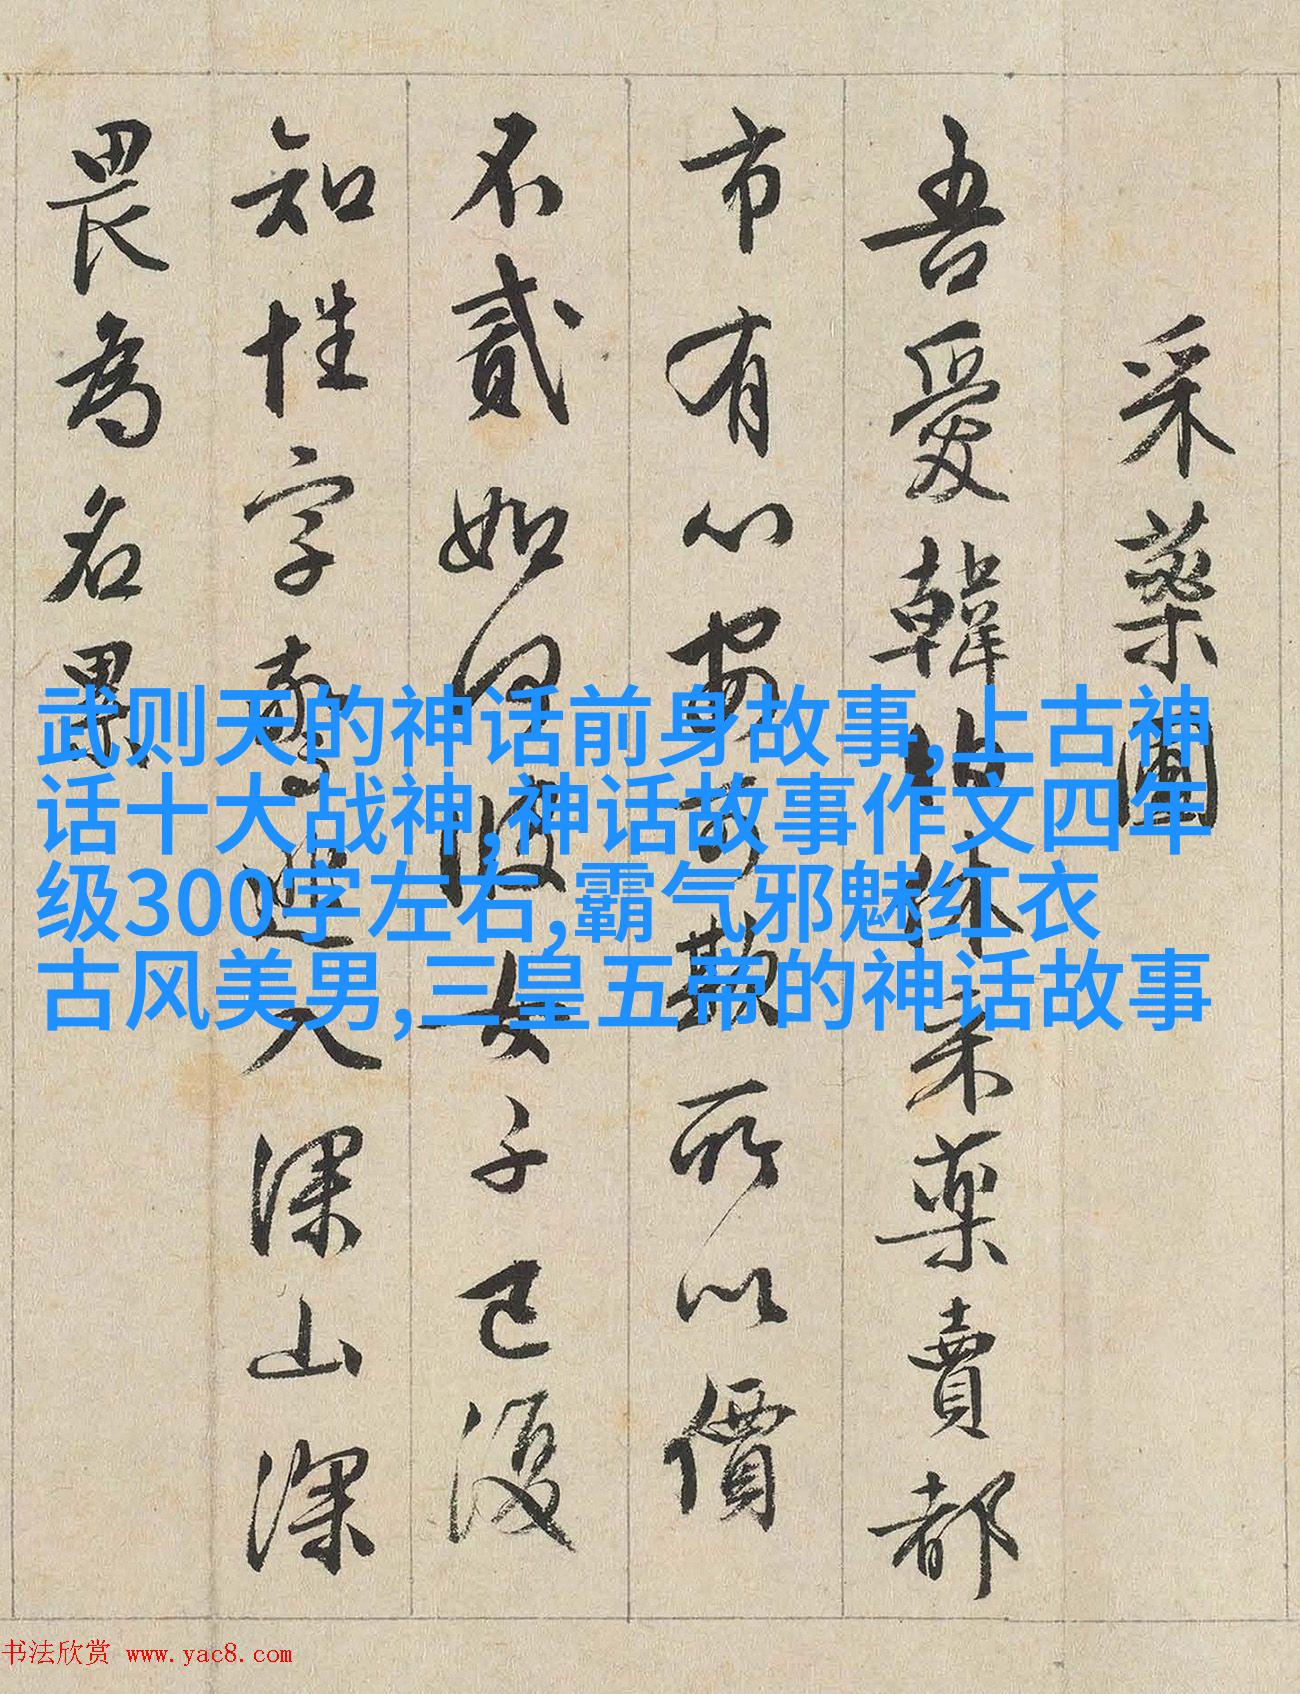 采藥圃
吾愛韓伯休采藥賣都
市有心安可欺所以價
不貳如何彼女子已復
知姓字驚逃入深山深
畏為名累
武则天的神话前身故事,上古神
话十大战神,神话故事作文四年
级300字左右,霸气邪魅红衣
古风美男,三皇五帝的神话故事
书法欣赏 www.yac8.com